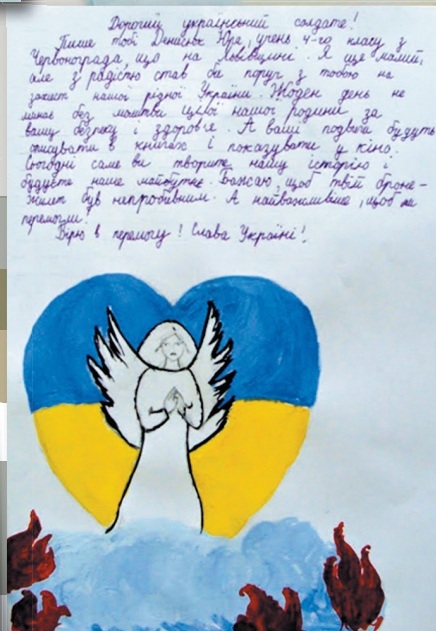 Дорогий український солдате!
Пише тобі Денисюк Юра, учень 4-го класу з
Червонограда, що на Львівщині. Я ще малий,
але з радістю став би поруч з тобою на
захист нашої рідної України. Жоден день не
минає без молитви цілої нашої родини за
вашу безпеку і здоров'є. А ваші подвиги будуть
описувати в книгах і показувати у кіно.
Сьогодні саме ви творите нашу історію і
будуєте наше майбутнє. Бажаю, щоб твій броне-
жилет був непробивним. А найважливіше, щоб ми
перемогли.
Вірю в перемогу! Слава Україні!